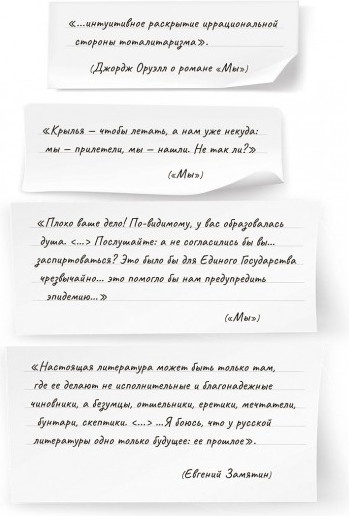 «...интуитивное раскрытие иррациональной
стороны тоталитаризма».
(Джордж Оруэлл о романе «Мы»)
«Крылья – чтобы летать, а нам уже некуда:
мы – прилетели, мы – нашли. Не так ли?»
(«Мы»)
«Плохо ваше дело! По-видимому, у вас образовалась
душа. <...> Послушайте: а не согласились бы вы...
заспиртоваться? Это было бы для Единого Государства
чрезвычайно... это помогло бы нам предупредить
эпидемию...»
(«Мы»)
«Настоящая литература может быть только там,
где ее делают не исполнительные и благонадежные
чиновники, а безумцы, отшельники, еретики, мечтатели,
бунтари, скептики. <...> ...Я боюсь, что у русской
литературы одно только будущее: ее прошлое».
(Евгений Замятин)